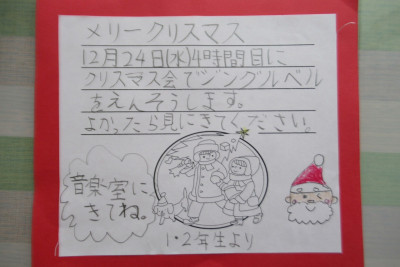 メリークリスマス
12月24日(水)4時間目に
クリスマス会でジングルベル
をえんそうします。
よかったら見にきてください。
音楽室に、
きてね。
1・2年生より